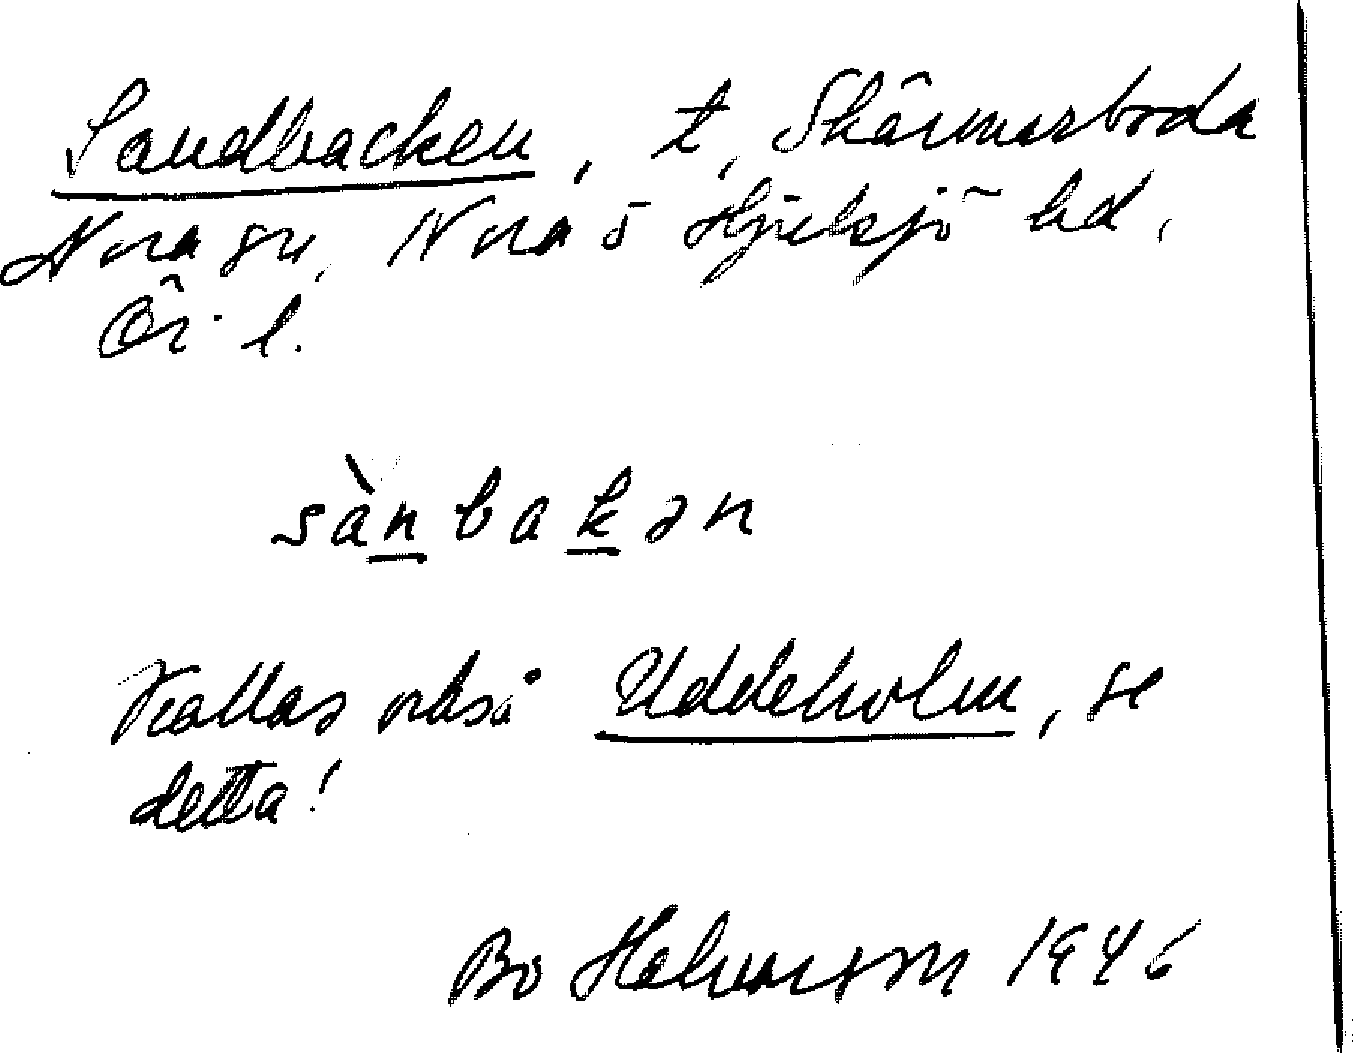 Sandbacken, t, Skärmarboda
Nora sn, Nora ö Hjulsjö bd,
Ör. l.
sànbakən
Kallas också Uddeholm, se
detta!
Bo 1946